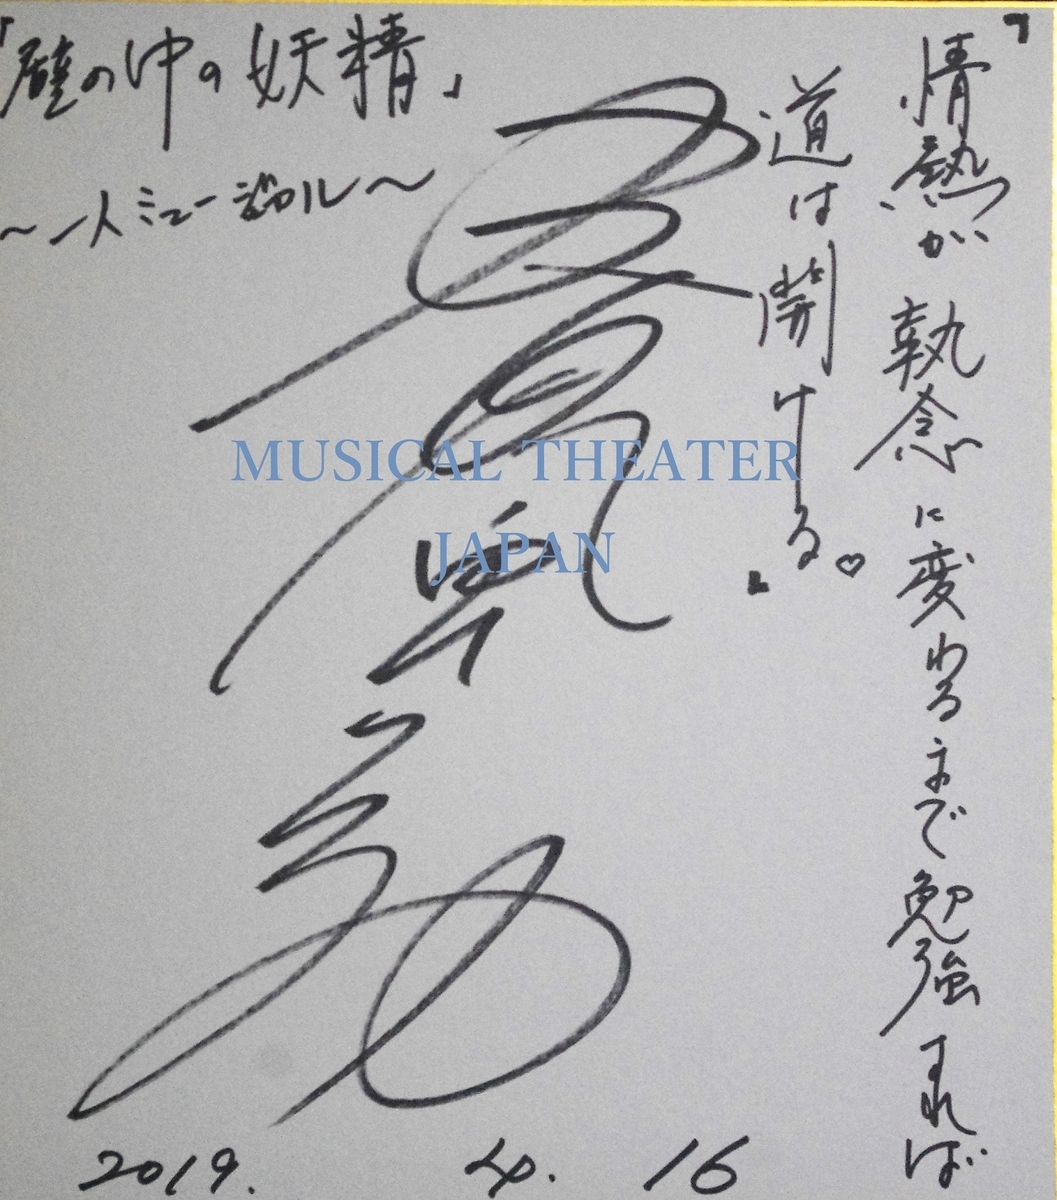 『情熱が執念に変わるまで勉強すれば
道は開ける♡』
「壁の中の妖精」
～一人ミュージカル～
MUSICAL THEATER
JAPAN
2019. 4. 16